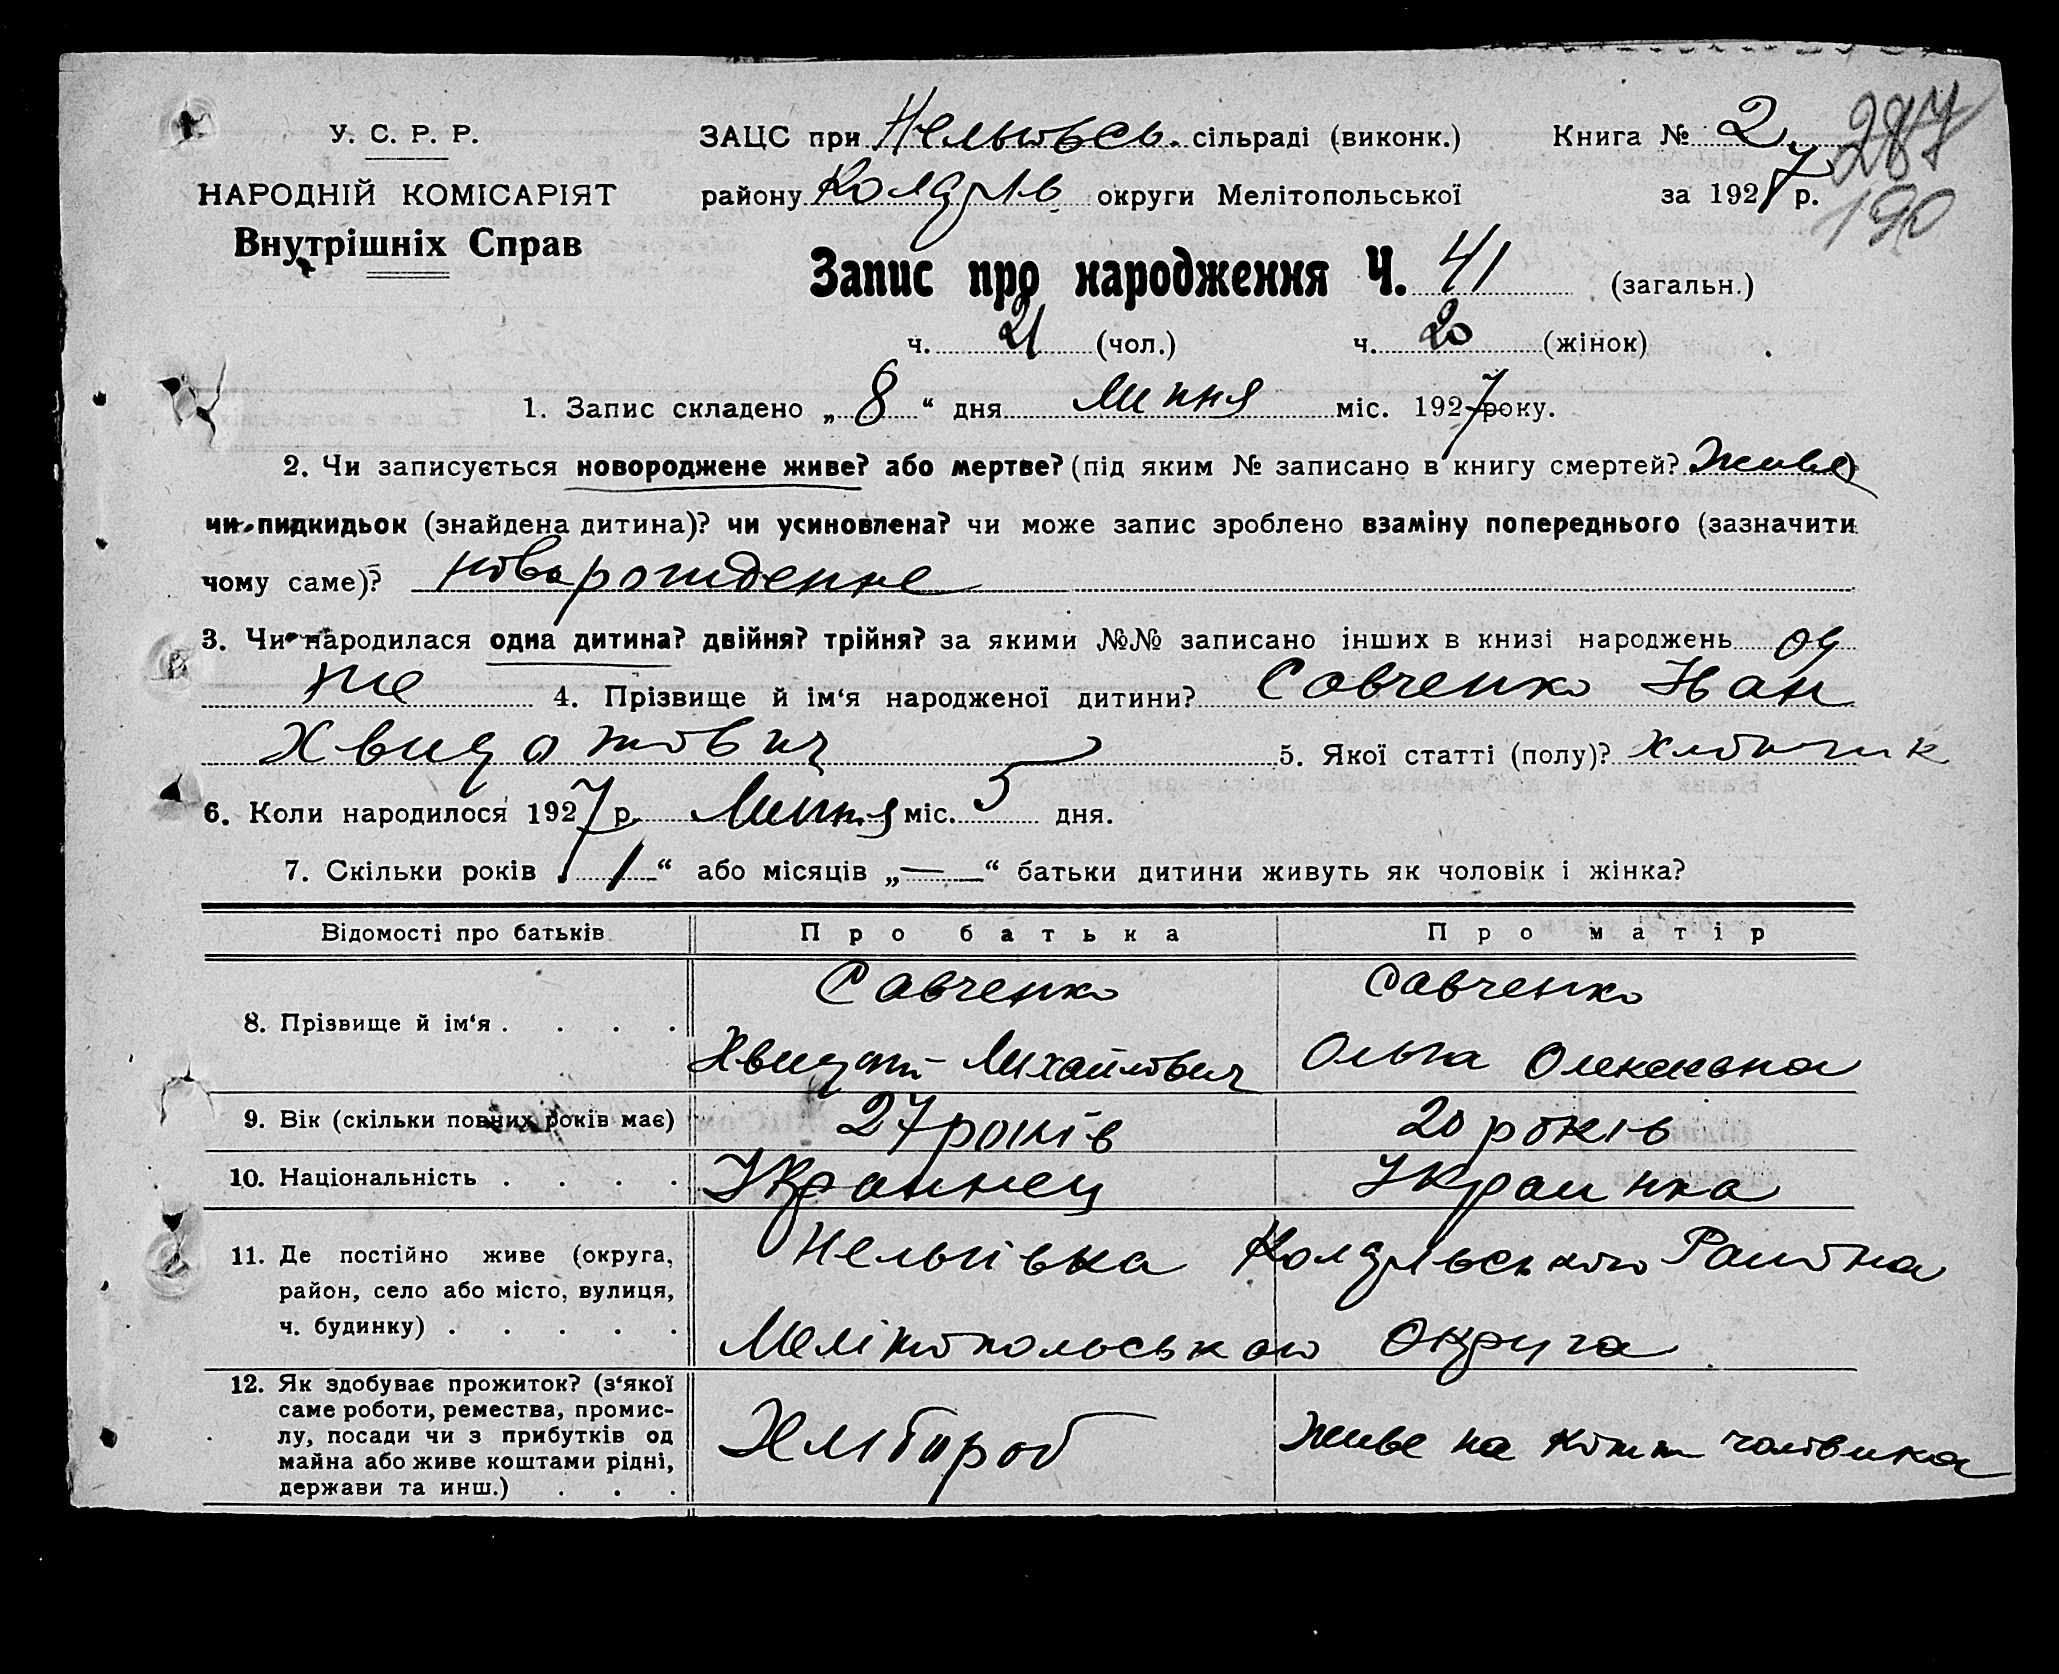 У. С. Р. Р.
НАРОДНІЙ КОМІСАРІЯТ
Внутрішніх Справ
ЗАЦС при Нельговсь. сільраді (виконк.) Книга № 2
287
району Колярів округи Мелітопольської за 1927 р.
190
Запис про народження Ч. 41 (загальн.)
ч. 21 (чол.) ч. 20 (жінок)
1. Запис складено „8“ дня Липня міс. 1927 року.
2. Чи записується новороджене живе? або мертве? (під яким № записано в книгу смертей? Живе
чи пидкидьок (знайдена дитина)? чи усиновлена? чи може запис зроблено взаміну попереднього (зазначити
чому саме)? новорожденне
3. Чи народилася одна дитина? двійня? трійня? за якими №№ записано інших в книзі народжень од
не 4. Прізвище й ім‘я народженої дитини? Савченко Иван
Хведотович 5. Якої статті (полу)? Хлопчик
6. Коли народилося 1927 р. Липня міс. 5 дня.
7. Скільки років „1“ або місяців „—“ батьки дитини живуть як чоловік і жінка?
Відомості про батьків Про батька Про матір
8. Прізвище й ім‘я . . . . Савченко Савченко
Хведот Михайлович Ольга Олексивна
9. Вік (скільки повних років має) 27 років 20 років
10. Національність . . . . Украинец Украинка
11. Де постійно живе (округа,
район, село або місто, вулиця,
ч. будинку) . . . . .
Нельгівка Района
Мелітопольського Округа
12. Як здобуває прожиток? (з‘якої
саме роботи, ремества, промис-
лу, посади чи з прибутків од
майна або живе коштами рідні,
держави та инш.) . . .
Хлібороб Живе на кошти чоловика